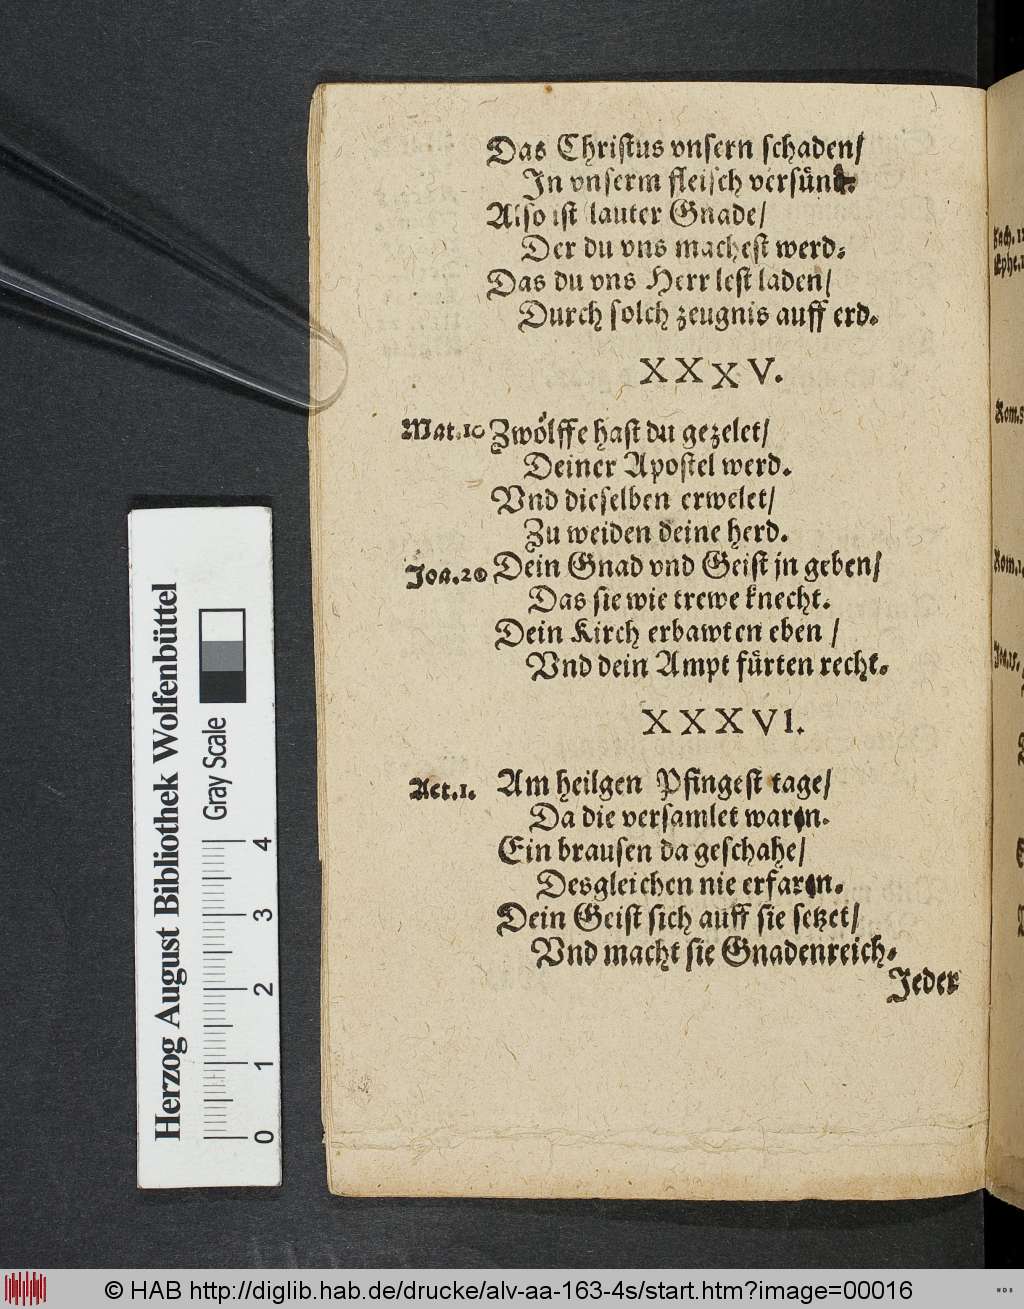 Das Christus vnsern schaden/
In vnserm fleisch versünt.
Also ist lauter Gnade/
Der du vns machest werd.
Das du vns Herr lest laden/
Durch solch zeugnis auff erd.
XXXV.
Mat.10 Zwölffe hast du gezelet/
Deiner Apostel werd.
Vnd dieselben erwelet/
Zu weiden deine herd.
Joa.20 Dein Gnad vnd Geist jn geben/
Das sie wie trewe knecht.
Dein Kirch erbawten eben /
Vnd dein Ampt fürten recht.
XXXVI.
Act.1. Am heilgen Pfingest tage/
Da die versamlet waren.
Ein brausen da geschahe/
Desgleichen nie erfaren.
Dein Geist sich auff sie setzet/
Vnd macht sie Gnadenreich.
Jeder
Rom.
Herzog August Bibliothek Wolfenbüttel
Gray Scale
0 1 2 3 4
© HAB http://diglib.hab.de/drucke/alv-aa-163-4s/start.htm?image=00016